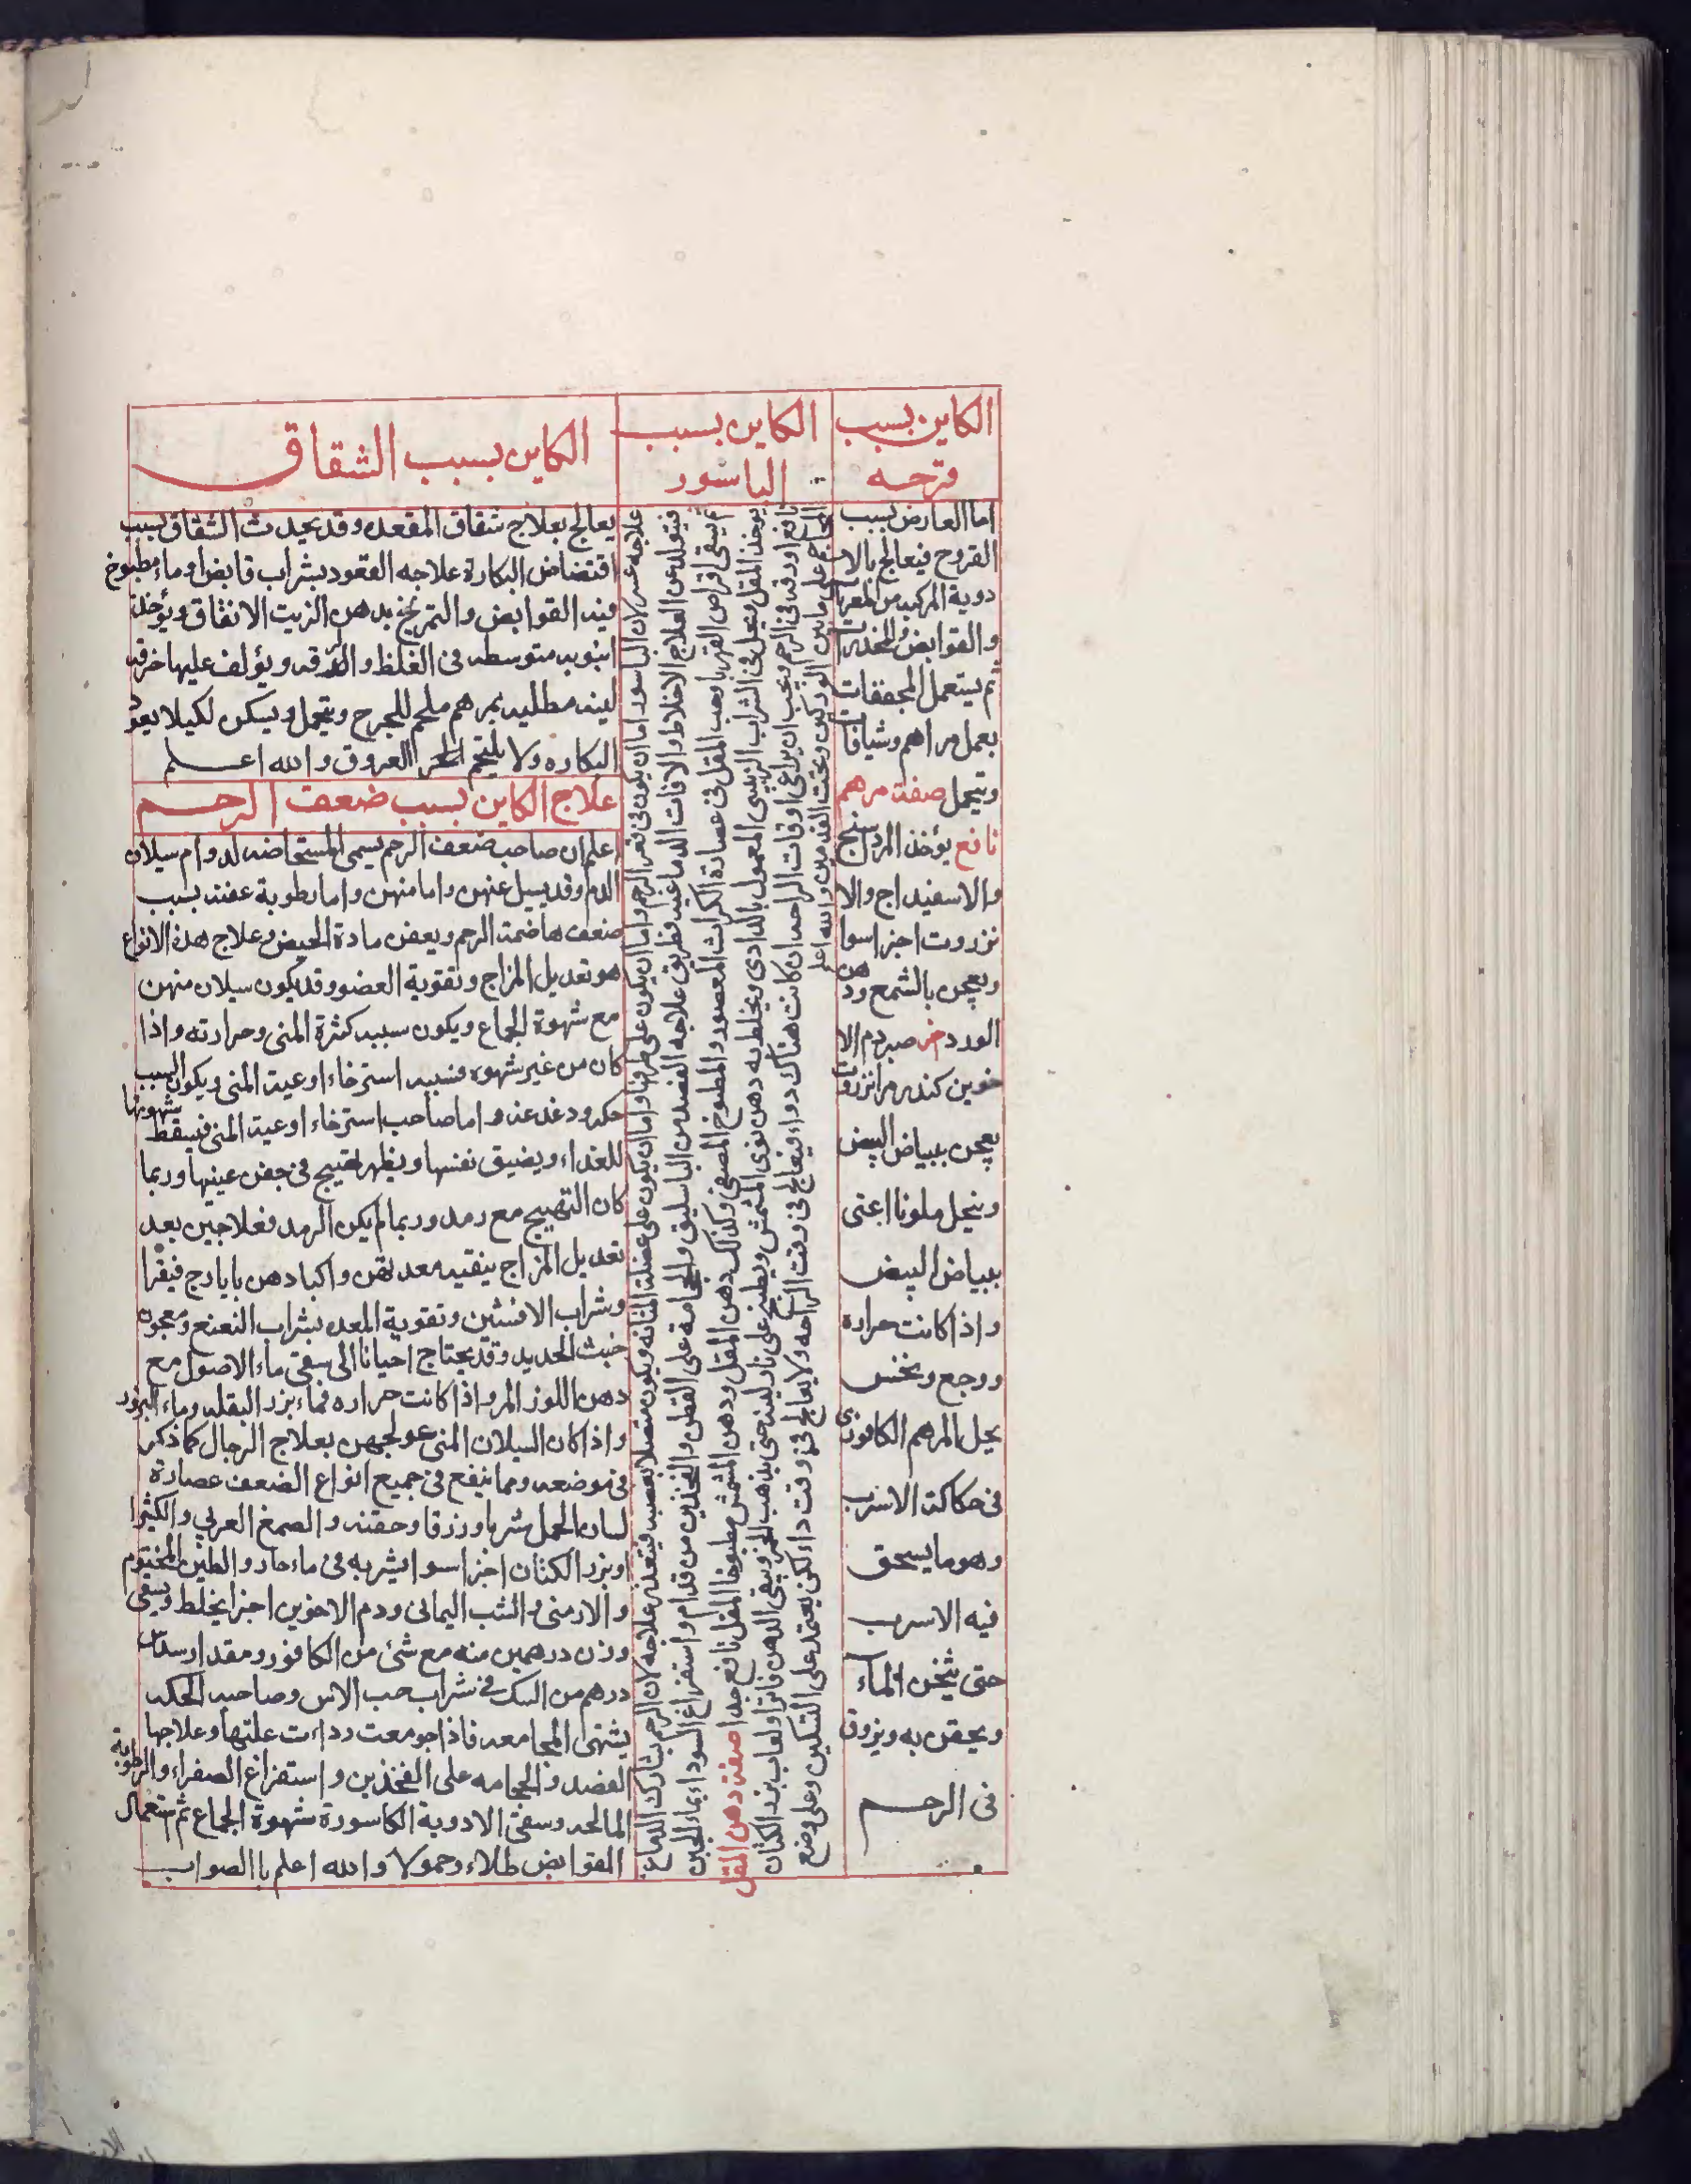 الكاين بسبب
قرحه
اما العارض بسبب
القروح فيعالج بالا
دوية المركبه من المغريا
والقوابض والمخدرا
ثم يستعمل المجففات
بعمل مراهم وشيافا
وتحمل صفة مرهم
نافع يؤخذ المرداسنج
والاسفيداج والا
نزروت اجزا سوا
ويعجن بالشمع ودهن
الورد صبر دم الا
خوين كندر مر انزروتا
يعجن ببياض البيض
ويحل ملونا اعنى
ببياض البيض
واذا كانت حرارة
ووجع ونخس
يحل المرهم الكافورى
فى حكاكة الاسرب
وهو ما يسحق
فيه الاسرب
حتى يثخن الماء
ويحقن به ويزوق
فى الرحم
الكاين بسبب
الباسور
علاجه عسر لان الباسور اما ان يكون فى قعر الرحم واما ان يكون على طرفها واما ان يكون على عضلة المثانه ويكون متصلا بعصبه فيتعذر علاجه لان الرحم يشارك الدماغ
فيتولد عن العلاج الاختلاط والافات الدماغيه فطريق علاجه الفصد من الباسليق والحجامة على القطن والفخذين من قدام واستفراغ السوداء بماء الجبن
ثم يسقى اقراص القهربا وحب المقل فى عصارة الكراث المعصور والمطبوخ المصفى وكذلك دهن المقل ودهن المشمش مطبوخا المقل نافع جدا صفة دهن المقل
يوخذ المقل ويحل فى الشراب الزبيبى المعمول بالدادى ويخلط به دهن نوى المشمش ويطبخ على نار لينه حتى يذهب الخمر ويبقى الدهن فاترا ولعاب بزر الكتان
نافع اورقه فى الرحم ويجب ان يراعى اوقات الراحه ان كانت هناك دواء فيعالج فى وقت الراحه ولا يعالج فى وقت داء لكن يعتمد على التسكين وعلى وضع
المحاجم على مابين الوركين وتحت القدمين والله اعلم
الكاين بسبب الشقاق
يعالج بعلاج شقاق المقعده وقد يحدث الشقاق بسبب
افتضاض البكارة علاجه القعود بشراب قابض او ماء مطبوخ
فيه القوابض والتمريخ بدهن الزيت الانفاق ويؤخذ
انبوبه متوسطه فى الغلظ والدقه ويؤلف عليها خرقه
لينه مطليه بمرهم ملحم للجرح وتحمل ويسكن لكيلا يعود
البكاره ولا يلتحم العروق والله اعلم
علاج الكاين بسبب ضعف الرحم
اعلم ان صاحب ضعف الرحم يسمى المستحاضه لدوام سيلان
الدم وقد يسيل عنهن واما منهن واما رطوبة عفنه بسبب
ضعف هاضمة الرحم ويعفن مادة الحيض وعلاج هذه الانواع
هو تعديل المزاج وتقوية العضو وقد يكون سيلان منهن
مع شهوة الجماع ويكون سببه كثرة المنى وحرارته واذا
كان من غير شهوه فسببه استرخاء اوعية المنى ويكون السبب
حكه ودغدغه واما صاحب استرخاء اوعية المنى فيسقط شهوتها
للغداء ويضيق نفسها ويظهر تهيج فى جفن عينيها وربما
كان التهييج مع رمد وربما لم يكن الرمد فعلاجهن بعد
تعديل المزاج بنقيه معدتهن واكبادهن بايارج فيقرا
وشراب الافسنتين وتقوية المعده بشراب النعنع ومعجون
خبث الحديد وقد يحتاج احيانا الى سقى ماء الاصول مع
دهن اللوز المر واذا كانت حراره فماء بزر البقله وماء البزور
واذا كان السيلان المنى عولجهن بعلاج الرجال كما ذكر
فى موضعه ومما ينفع فى جميع انواع الضعف عصارة
لسان الحمل شربا وزرقا وحقنه والصمغ العربي والكثيرا
وبزر الكتان اجزا سوا يشربه فى ماء حار والطين المختوم
والارمنى والشب اليمانى ودم الاخوين اجزا يخلط ويسقى
وزن درهمين منه مع شئ من الكافور ومقدار سدس
درهم من السك فى شراب حب الاس وصاحبه الحكه
يشتهى المجامعه فاذا جومعت رداءت علتها وعلاجها
الفصد والحجامه على الفخذين واستفراغ الصفراء والرطوبة
المالحه وسقى الادوية الكاسورة شهوة الجماع ثم استعمال
القوابض طلاء وحمولا والله اعلم باالصواب